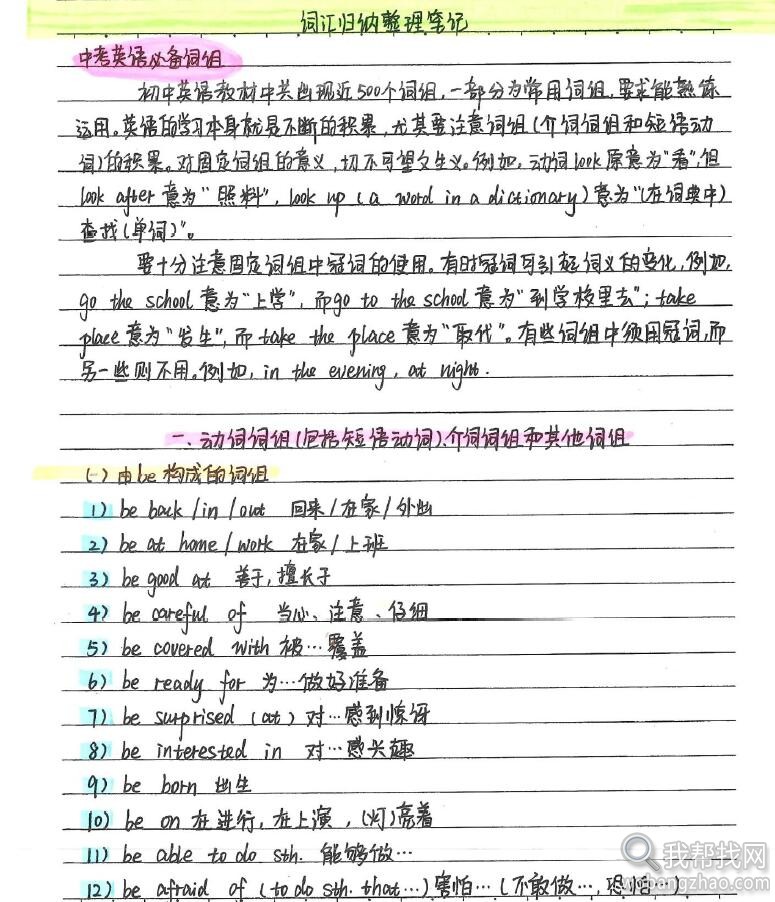 词汇归纳整理笔记
中考英语必备词组
初中英语教材中共出现近500个词组,一部分为常用词组,要求能熟练
运用。英语的学习本身就是不断的积累,尤其要注意词组(介词词组和短语动
词)的积累。对固定词组的意义,切不可望文生义。例如,动词look原意为"看",但
look after意为"照料",look up (a word in a dictionary)意为"(在词典中)
查找(单词)"。
要十分注意固定词组中冠词的使用。有时冠词可引起词义的变化,例如,
go the school意为"上学",而go to the school意为"到学校里去";take
place意为"发生",而take the place意为"取代"。有些词组中须用冠词,而
另一些则不用。例如,in the evening, at night.
一、动词词组(包括短语动词)、介词词组和其他词组
(一)由be构成的词组
1) be back /in /out 回来/在家/外出
2) be at home / work 在家/上班
3) be good at 善于,擅长于
4) be careful of 当心、注意、仔细
5) be covered with 被…覆盖
6) be ready for 为…做好准备
7) be surprised (at) 对…感到惊讶
8) be interested in 对…感兴趣
9) be born 出生
10) be on 在进行,在上演,(灯)亮着
11) be able to do sth. 能够做…
12) be afraid of (to do sth. that…) 害怕…(不敢做…,恐怕…)
我帮找网
wobangzhao.com